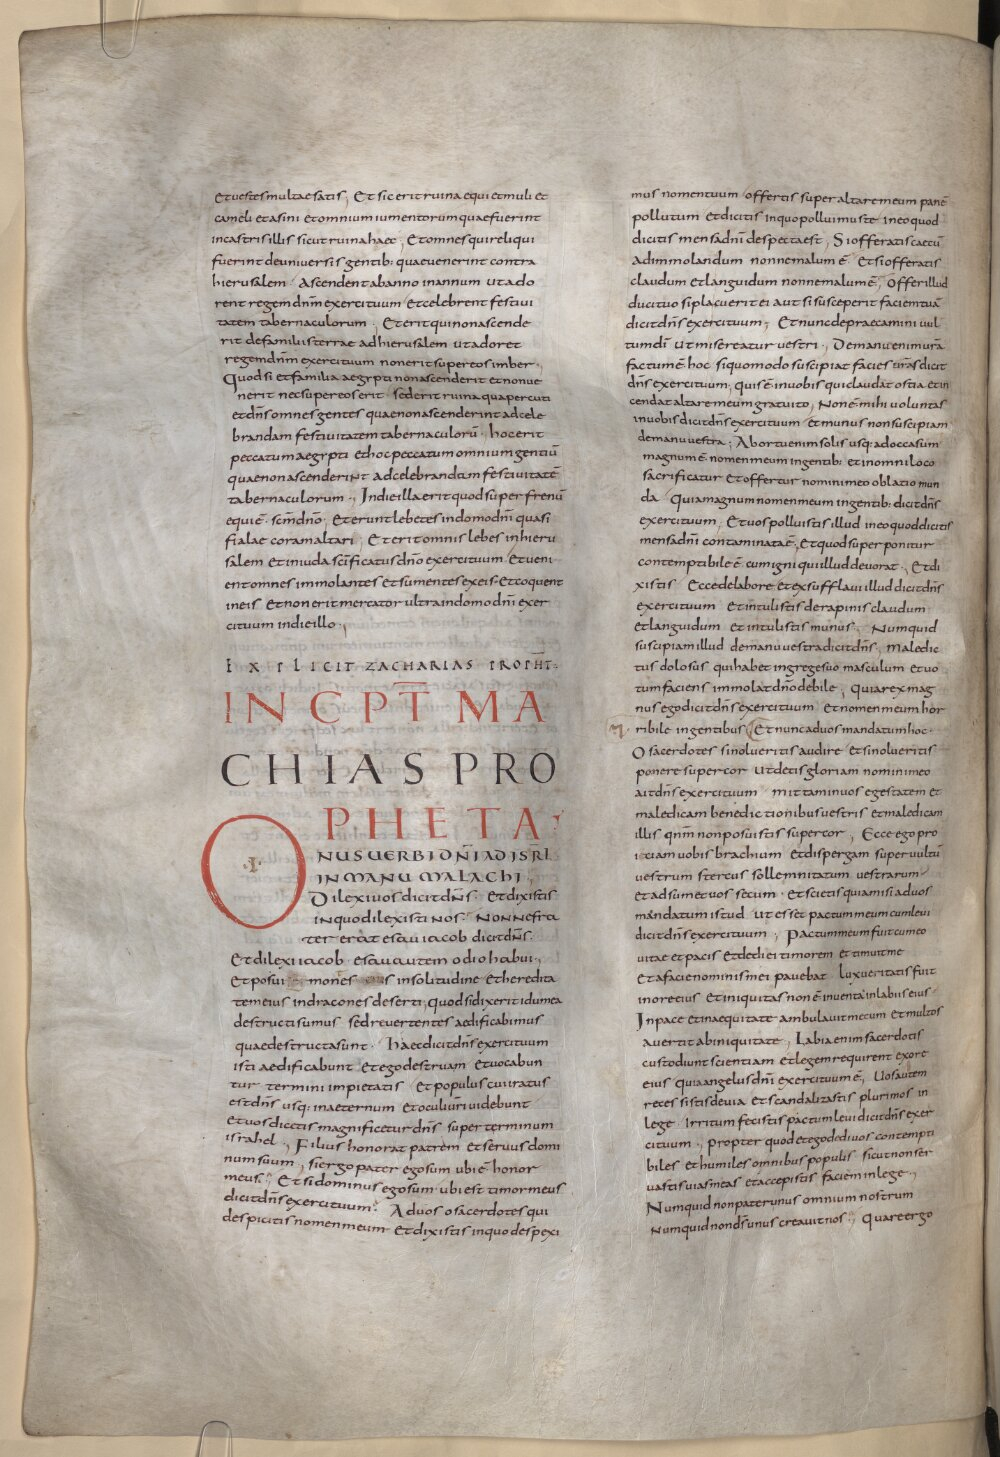 et uestes multae satis ; Et sic erit ruina equi et muli et
cameli et asini et omnium iumentorum quae fuerint
in castris illis sicut ruina haec ; Et omnes qui reliqui
fuerint de uniuersis gentib: quae uenerint contra
hierusalem . Ascendent ab anno in annum ut ado
rent regem dn̄m exercituum et celebrent festiui
tatem tabernaculorum . Et erit qui non ascende
rit de familiis terrae ad hierusalem ut adoret
regem dn̄m exercituum non erit super eos imber .
Quod si et familia aegypti non ascenderit et non ue
nerit nec super eos erit . sed erit ruina qua percuti
et dn̄s omnes gentes quae non ascenderint ad cele
brandam festiuitatem tabernaculorū . hoc erit
peccatum aegypti et hoc peccatum omnium gentiū
quae non ascenderint ad celebrandam festiuitatē
tabernaculorum ., In die illa erit quod super frenū
equi ē . scm̄ dn̄o ; Et erunt lebetes in domo dn̄i quasi
fialae coram altari ; Et erit omnis lebes in hieru
salem et in iuda sc̄ificatus dn̄o exercituum Et ueni
ent omnes immolantes et sumentes ex eis . Et coquent
in eis Et non erit mercator ultra in domo dn̄i exer
cituum in die illo .,
EXPLICIT ZACHARIAS PROPHT̄:
INCPT̄ MA
CHIAS PRO
PHETA
ONUS UERBI DN̄I AD ISRL̄
IN MANU MALACHI
Dilexi uos dicit dn̄s . Et dixistis
in quo dilexisti nos . Nonne fra
ter erat esau iacob dicit dn̄s .
Et dilexi iacob . esau autem odio habui .,
Et posui montes eius in solitudine et heredita
tem eius in dracones deserti ; quod si dixerit idumea
destructi sumus sed reuertentes aedificabimus
quae destructa sunt . haec dicit dn̄s exercituum
isti aedificabunt et ego destruam Et uocabun
tur termini impietatis Et populus cui iratus
est dn̄s usq: in aeternum et oculi ur̄i uidebunt
et uos dicetis magnificetur dn̄s super terminum
israhel ., Filius honorat patrem et seruus domi
num suum ; si ergo pater ego sum ubi ē honor
meus ; Et si dominus ego sum ubi est timor meus
dicit dn̄s exercituum . Ad uos o sacerdotes qui
despicitis nomen meum Et dixistis in quo despexi
mus nomen tuum offertis super altare meum panē
pollutum Et dicitis in quo polluimus te in eo quod
dicitis mensa dn̄i despecta est ; Si offeratis caecū
ad immolandum nonne malum ē Et si offeratis
claudum et languidum nonne malum ē ; Offer illud
duci tuo si placuerit ei aut si susceperit faciem tuā
dicit dn̄s exercituum ; Et nunc depraecamini uul
tum dī ut misereatur uestri . De manu enim ur̄a
factum ē hoc si quo modo suscipiat facies ur̄as dicit
dn̄s exercituum ; quis ē in uobis qui claudat ostia et in
cendat altare meum gratuito ; Non ē mihi uoluntas
in uobis dicit dn̄s exercituum Et munus non suscipiam
de manu uestra ; Ab ortu enim solis usq: ad occasum
magnum ē nomen meum in gentib: et in omni loco
sacrificatur et offertur nomini meo oblatio mun
da Quia magnum nomen meum in gentib: dicit dn̄s
exercituum ; Et uos polluistis illud in eo quod dicitis
mensa dn̄i contaminata ē ; Et quod super ponitur
contemptibile ē cum igni qui illud deuorat ., Et di
xistis Ecce de labore et exsufflaui illud dicit dn̄s
exercituum Et intulistis de rapinis claudum
et languidum Et intulistis munus . Numquid
suscipiam illud de manu uestra dicit dn̄s . Maledic
tus dolosus qui habet in grege suo masculum et uo
tum faciens immolat dn̄o debile ; Quia rex mag
nus ego dicit dn̄s exercituum Et nomen meum hor
ribile in gentibus ; Et nunc ad uos mandatum hoc .
O sacerdotes si nolueritis audire et si nolueritis
ponere super cor ut detis gloriam nomini meo
ait dn̄s exercituum mittam in uos egestatem et
maledicam benedictionibus uestris et maledicam
illis qnm̄ non posuistis super cor ; Ecce ego pro
iciam uobis brachium et dispergam super uultū
uestrum stercus sollemnitatum uestrarum
et adsumet uos secum Et scietis quia misi ad uos
mandatum istud ut esset pactum meum cum leui
dicit dn̄s exercituum ; Pactum meum fuit cum eo
uitae et pacis Et dedi ei timorem et timuit me
Et a facie nominis mei pauebat Lux ueritatis fuit
in ore eius Et iniquitas non ē inuenta in labiis eius
In pace et in aequitate ambulauit mecum et multos
auertit ab iniquitate ; Labia enim sacerdotis
custodiunt scientiam et legem requirent ex ore
eius quia angelus dn̄i exercituum ē ; Uos autem
recessistis de uia et scandalizastis plurimos in
lege Irritum fecistis pactum leui dicit dn̄s exer
cituum ; propter quod et ego dedi uos contempti
biles et humiles omnibus populis sicut non ser
uastis uias meas et accepistis faciem in lege .,
Numquid non pater unus omnium nostrum
Numquid non dn̄s unus creauit nos ; Quare ergo